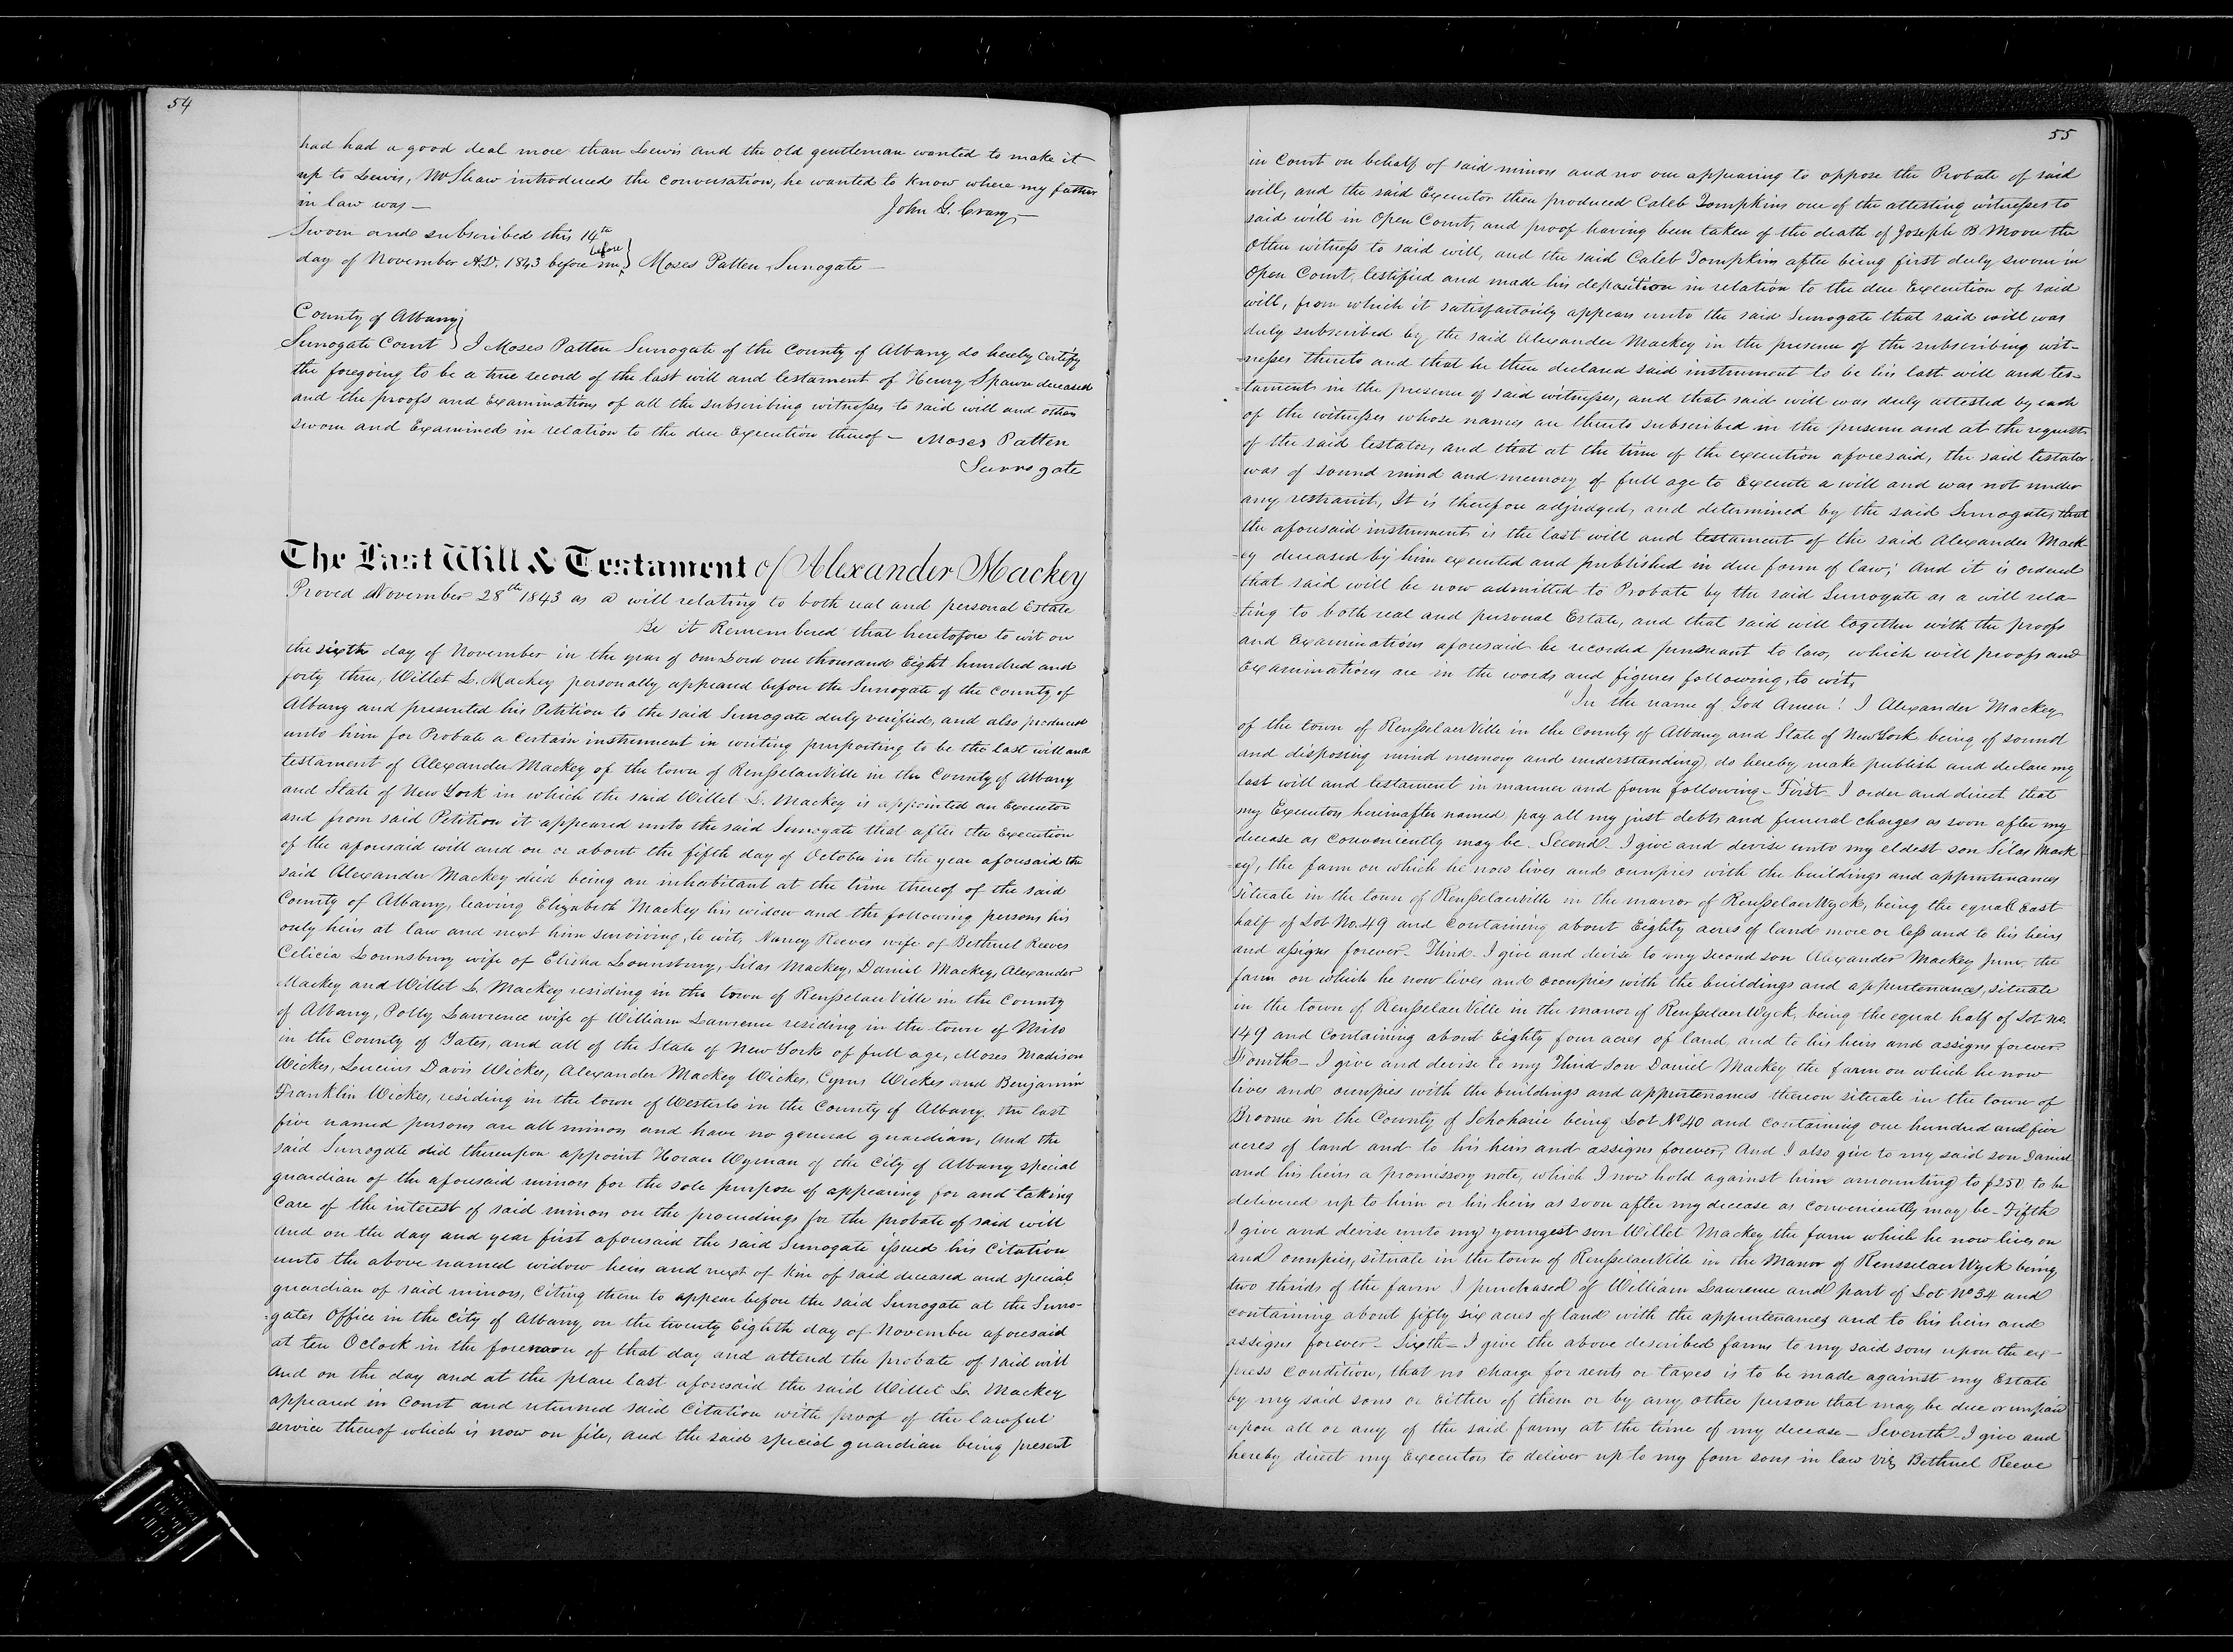 54
had had a good deal more than Lewis and the old gentleman wanted to make it
up to Lewis, Mr Shaw introduced the conversation, he wanted to know where my father
in law was —
John G. Crary —
Sworn and subscribed this 14th
day of November A.D. 1843 before me before } Moses Patten Surrogate —
County of Albany }
Surrogate Court } I Moses Patten Surrogate of the County of Albany do hereby Certify
the foregoing to be a true record of the last will and testament of Henry Spawn deceased
and the proofs and Examinations of all the subscribing witnesses to said will and others
sworn and Examined in relation to the due Execution thereof — Moses Patten
Surrogate
The Last Will & Testament of Alexander Mackey
Proved November 28th 1843 as a will relating to both real and personal Estate
Be it Remembered that heretofore to wit on
the sixth day of November in the year of our Lord one thousand Eight hundred and
forty three, Willet L. Mackey personally appeared before the Surrogate of the County of
Albany and presented his Petition to the said Surrogate duly verified, and also produced
unto him for Probate a certain instrument in writing purporting to be the last will and
testament of Alexander Mackey of the town of RensselaerVille in the County of Albany
and State of New York in which the said Willet L. Mackey is appointed an Executor
and from said Petition it appeared unto the said Surrogate that after the Execution
of the aforesaid will and on or about the fifth day of October in the year aforesaid the
said Alexander Mackey died being an inhabitant at the time thereof of the said
County of Albany, leaving Elizabeth Mackey his widow and the following persons his
only heirs at law and next him surviving, to wit, Nancy Reeves wife of Bethuel Reeves
Celicia Lounsbury wife of Elisha Lounsbury, Silas Mackey, Daniel Mackey, Alexander
Mackey and Willet L. Mackey residing in the town of RensselaerVille in the County
of Albany, Polly Lawrence wife of William Lawrence residing in the town of Milo
in the County of Yates, and all of the State of New York of full age, Moses Madison
Wickes, Lucius Davis Wickes, Alexander Mackey Wickes, Cyrus Wickes and Benjamin
Franklin Wickes, residing in the town of Westerlo in the County of Albany, the last
five named persons are all minors and have no general guardian, And the
said Surrogate did thereupon appoint Horace Wyman of the City of Albany special
guardian of the aforesaid minors for the sole purpose of appearing for and taking
care of the interest of said minors on the proceedings for the probate of said will
and on the day and year first aforesaid the said Surrogate issued his Citation
unto the above named widow heirs and next of kin of said deceased and special
guardian of said minors, Citing them to appear before the said Surrogate at the Surro-
=gates Office in the City of Albany on the twenty Eighth day of November aforesaid
at ten O clock in the forenoon of that day and attend the probate of said will
And on the day and at the place last aforesaid the said Willet L. Mackey
appeared in Court and returned said Citation with proof of the lawful
service thereof which is now on file, and the said special guardian being present
55
in Court on behalf of said minors and no one appearing to oppose the Probate of said
will, and the said Executor then produced Caleb Tompkins one of the attesting witnesses to
said will in Open Court, and proof having been taken of the death of Joseph B Moore the
other witness to said will, and the said Caleb Tompkins after being first duly sworn in
Open Court, testified and made his deposition in relation to the due Execution of said
will, from which it satisfactorily appears unto the said Surrogate that said will was
duly subscribed by the said Alexander Mackey in the presence of the subscribing wit-
-nesses thereto and that he then declared said instrument to be his last will and tes-
=tament in the presence of said witnesses, and that said will was duly attested by each
of the witnesses whose names are thereto subscribed in the presence and at the request
of the said testator, and that at the time of the execution aforesaid, the said testator
was of sound mind and memory of full age to Execute a will and was not under
any restraint, It is therefore adjudged, and determined by the said Surrogate, that
the aforesaid instrument is the last will and testament of the said Alexander Mack-
-ey deceased by him executed and published in due form of law; And it is ordered
that said will be now admitted to Probate by the said Surrogate as a will rela-
-ting to both real and personal Estate, and that said will together with the proofs
and Examinations aforesaid be recorded pursuant to law, which will proofs and
Examinations are in the words and figures following, to wit,
"In the name of God Amen! I Alexander Mackey
of the town of RensselaerVille in the County of Albany and State of New York being of sound
and disposing mind memory and understanding, do hereby make publish and declare my
last will and testament in manner and form following – First – I order and direct that
my Executors hereinafter named, pay all my just debts and funeral charges as soon after my
decease as conveniently may be – Second – I give and devise unto my eldest son Silas Mack
-ey, the farm on which he now lives and occupies with the buildings and appurtenances
situate in the town of Rensselaerville in the manor of RensselaerWyck, being the equal East
half of Lot No. 49 and containing about Eighty acres of land more or less and to his heirs
and assigns forever – Third – I give and devise to my second son Alexander Mackey Junr. the
farm on which he now lives and occupies with the buildings and appurtenances, situate
in the town of RensselaerVille in the manor of RensselaerWyck, being the equal half of Lot no.
149 and containing about Eighty four acres of land, and to his heirs and assigns forever
Fourth – I give and devise to my Third son Daniel Mackey the farm on which he now
lives and occupies with the buildings and appurtenances thereon situate in the town of
Broome in the County of Schoharie being Lot No 40 and containing one hundred and five
acres of land and to his heirs and assigns forever, And I also give to my said son Daniel
and his heirs a promissory note, which I now hold against him amounting to $250, to be
delivered up to him or his heirs as soon after my decease as conveniently may be – Fifth
I give and devise unto my youngest son Willet Mackey the farm which he now lives on
and occupies, situate in the town of RensselaerVille in the Manor of RensselaerWyck being
two thirds of the farm I purchased of William Lawrence and part of Lot No 34 and
containing about fifty six acres of land with the appurtenances and to his heirs and
assigns forever – Sixth – I give the above described farms to my said sons upon the ex-
press condition, that no charge for rents or taxes is to be made against my Estate
by my said sons or Either of them or by any other person that may be due or unpaid
upon all or any of the said farms at the time of my decease – Seventh – I give and
hereby direct my Executors to deliver up to my four sons in law viz Bethuel Reeve